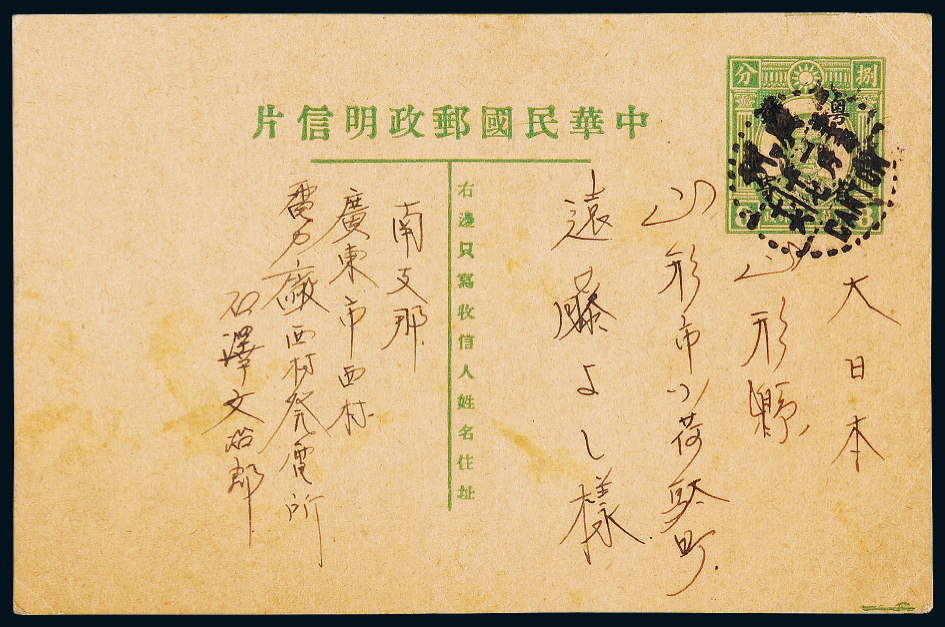 中華民國郵政明信片
捌
分
粵
CANTON
大日本
山形縣
山形市小荷駄町
遠藤よし様
右邊只寫收信人姓名住址
南支那
廣東市西村
電力廠西村発電所
石澤文治郎